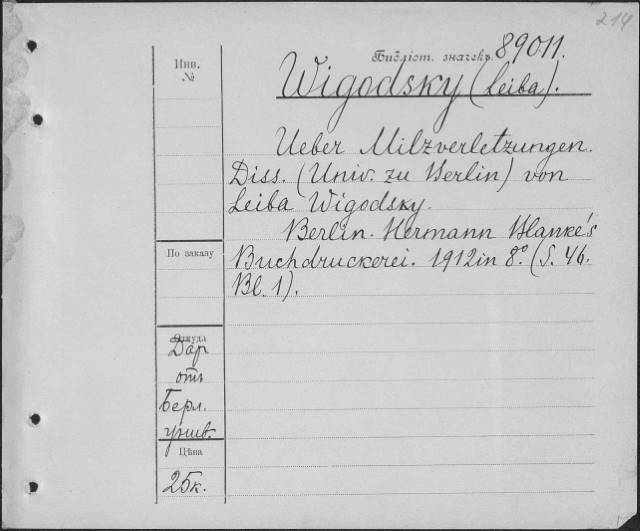 214
Инв.
№
Библіот. значекъ. 89011.
Wigodsky (Leiba).
Ueber Milzverletzungen.
Diss. (Univ. zu Berlin) von
Leiba Wigodsky.
Berlin. Hermann Blanke's
Buchdruckerei. 1912 in 8° (S. 46.
Bl. 1).
По заказу
Откуда
Дар
отъ
Берл.
унив.
Цѣна
25к.